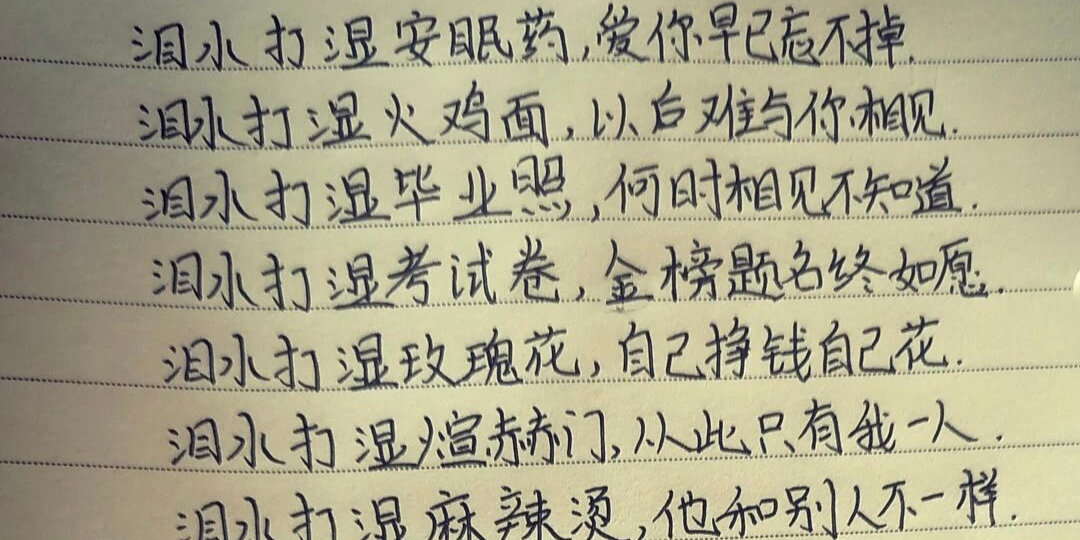 泪水打湿安眠药,爱你早已忘不掉.
泪水打湿火鸡面,以后难与你相见.
泪水打湿毕业照,何时相见不知道.
泪水打湿考试卷,金榜题名终如愿.
泪水打湿玫瑰花,自己挣钱自己花.
泪水打湿煊赫门,从此只有我一人.
泪水打湿麻辣烫,他和别人不一样.